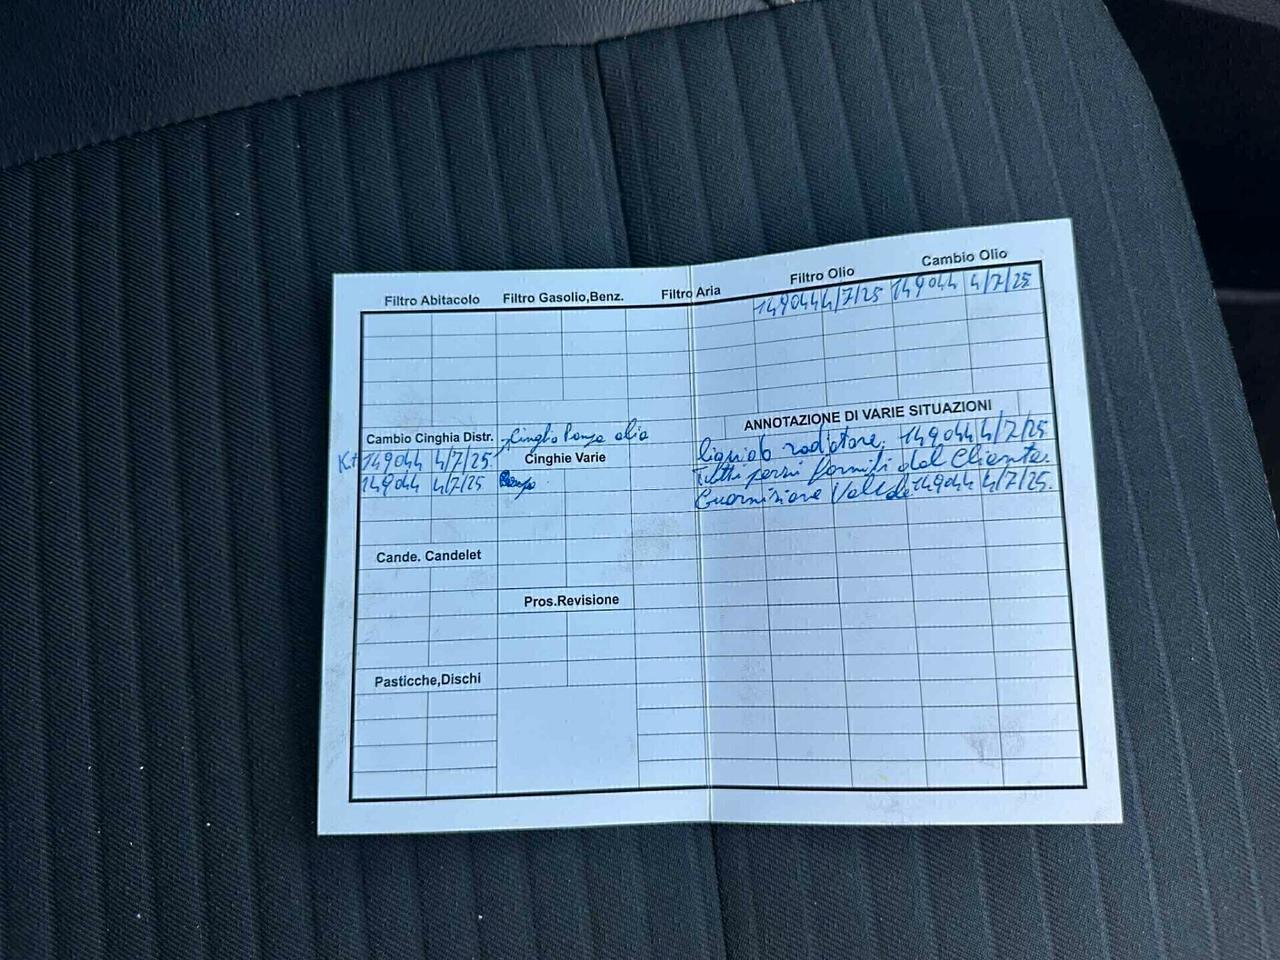 Filtro Abitacolo Filtro Gasolio,Benz. Filtro Aria Filtro Olio Cambio Olio
149044 4/7/25 149044 4/7/25
Cambio Cinghia Distr. Cinghia Pompa olio
Kit 149044 4/7/25 Cinghie Varie
149044 4/7/25
Cande. Candelet
Pros.Revisione
Pasticche,Dischi
ANNOTAZIONE DI VARIE SITUAZIONI
liquido radiatore 149044 4/7/25
Tutti pezzi forniti dal Cliente.
Guarnizione 149044 4/7/25.